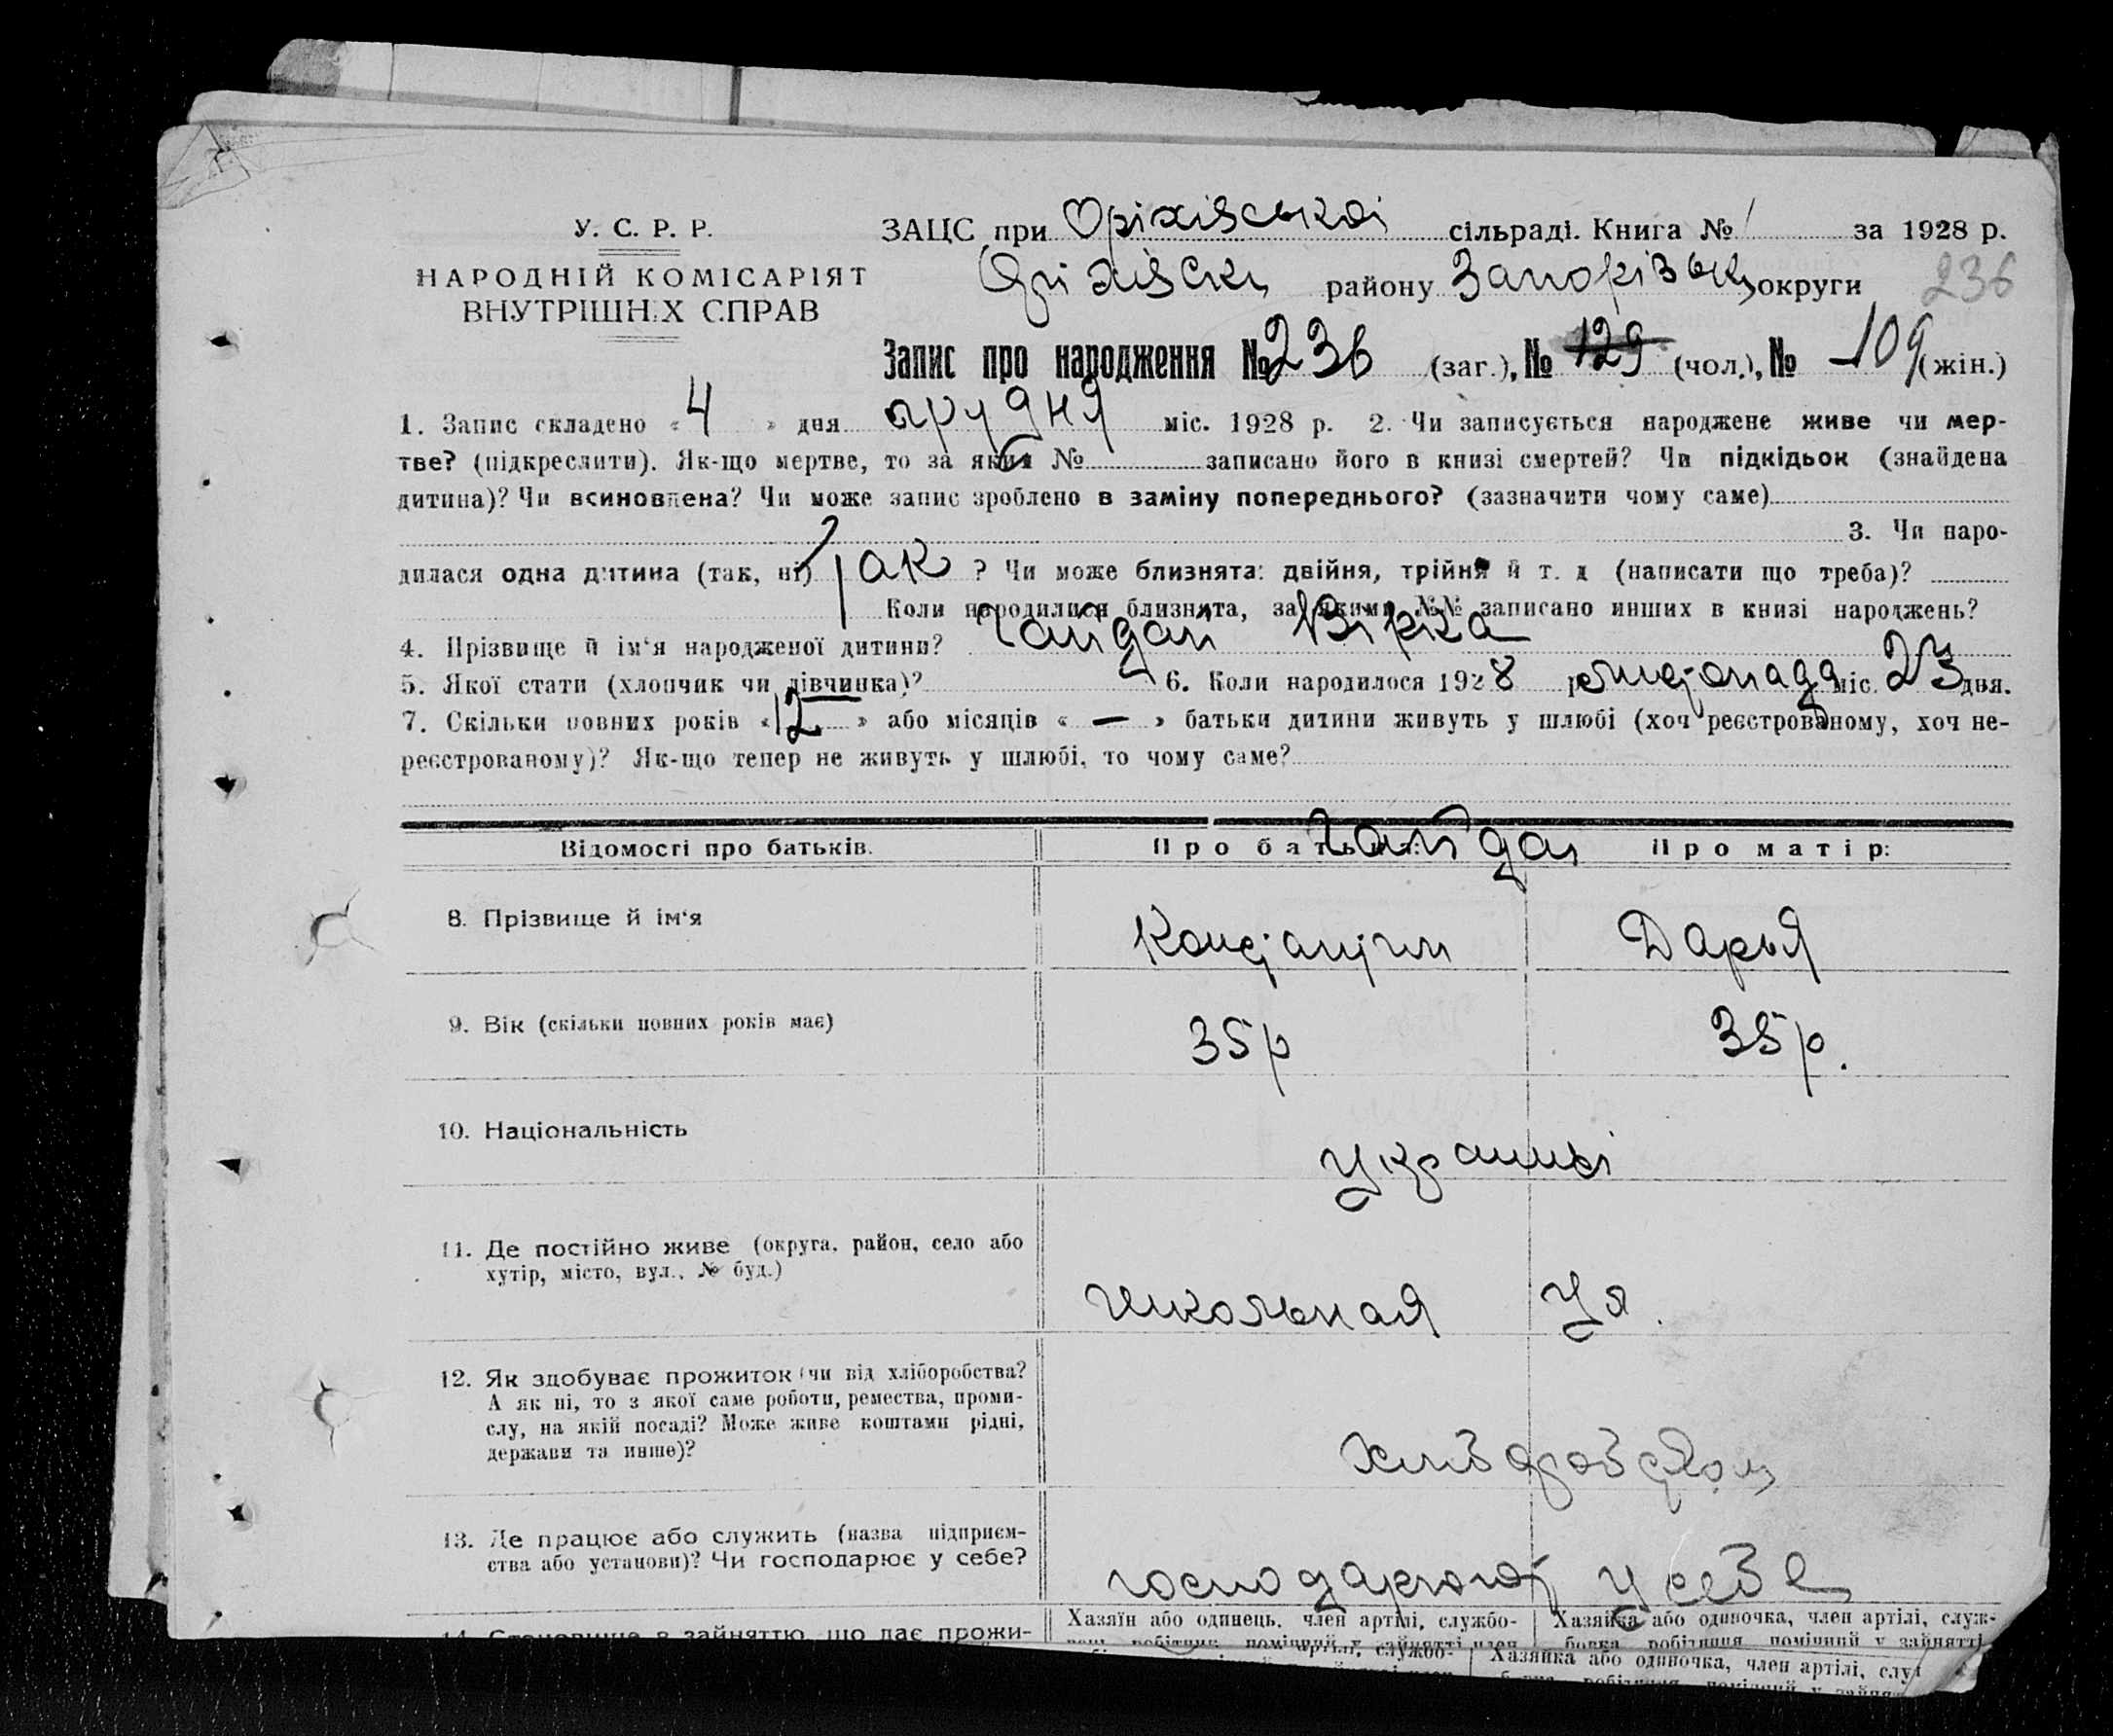 У. С. Р. Р.
НАРОДНІЙ КОМІСАРІЯТ
ВНУТРІШНІХ СПРАВ
ЗАЦС при Оріхівській сільраді. Книга № 1 за 1928 р.
Оріхівськ району Запорізьк округи 236
Запис про народження № 236 (заг.), № 129 (чол.), № 109 (жін.)
1. Запис складено « 4 » дня грудня міс. 1928 р. 2. Чи записується народжене живе чи мер-
тве? (підкреслити). Як-що мертве, то за яким № записано його в книзі смертей? Чи підкідьок (знайдена
дитина)? Чи всиновлена? Чи може запис зроблено в заміну попереднього? (зазначити чому саме)
3. Чи наро-
дилася одна дитина (так, ні) Так ? Чи може близнята: двійня, трійня й т. д (написати що треба)?
Коли народилися близнята, за якими №№ записано инших в книзі народжень?
4. Прізвище й ім‘я народженої дитини? Гайдай Вірка
5. Якої стати (хлопчик чи дівчинка)? 6. Коли народилося 1928 р. листопада міс. 23 дня.
7. Скільки повних років « 12 » або місяців « — » батьки дитини живуть у шлюбі (хоч реєстрованому, хоч не-
реєстрованому)? Як-що тепер не живуть у шлюбі, то чому саме?
Відомості про батьків. Про батька: Гайдай Про матір:
8. Прізвище й ім‘я Констянтин Дарья
9. Вік (скільки повних років має) 35 р 35 р.
10. Національність Українці
11. Де постійно живе (округа, район, село або
хутір, місто, вул., № буд.) Школьная Ул.
12. Як здобуває прожиток (чи від хліборобства?
А як ні, то з якої саме роботи, ремества, проми-
слу, на якій посаді? Може живе коштами рідні,
держави та инше)?
13. Де працює або служить (назва підприєм-
ства або установи)? Чи господарює у себе? господарюют у себе
14. Становище в зайняттю, що дає прожи-
Хазяїн або одинець, член артілі, службо- Хазяйка або одиночка, член артілі, служ-
вець, робітник, помічний у зайнятті член бовка, робітниця, помічний у зайнятті
артілі, службо- Хазяйка або одиночка, член артілі, слу